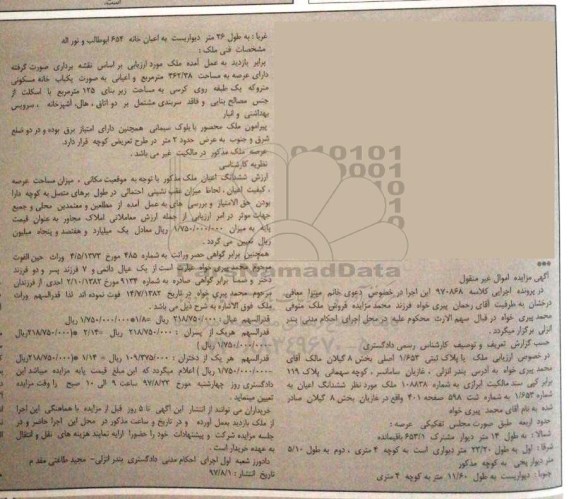 است.
***
آگهی مزایده اموال غیر منقول
در پرونده اجرایی کلاسه ۹۷۰۸۶۸ این اجرا در خصوص دعوی خانم میترا معافی
درخشان به طرفیت آقای رحمان پیری خواه فرزند محمد مزایده فروش ملک متوفی
محمد پیری خواه در قبال سهم الارث محکوم علیه در محل اجرای احکام مدنی بندر
انزلی برگزار میگردد.
حسب گزارش تعریف و توصیف کارشناس رسمی دادگستری
در خصوص ارزیابی ملک با پلاک ثبتی ۱/۶۵۳ اصلی بخش ۸ گیلان مالک آقای
محمد پیری خواه به آدرس بندر انزلی ، غازیان سامانسر ، کوچه سهمانی پلاک ۱۱۹
برابر کپی سند مالکیت ابرازی به شماره ۱۰۸۸۳۸ ملک مورد نظر ششدانگ اعیان به
شماره ۱/۶۵۳ به شماره ثبت ۵۹۸ صفحه ۴۰۱ واقع در غازیان بخش ۸ گیلان صادر
شده به نام آقای محمد پیری خواه
حدود اربعه طبق صورت مجلس تفکیکی عرصه :
شمالا : به طول ۱۴ متر دیوار مشترک ۶۵۳/۱ باقیمانده
شرقا : اول به طول ۲۲/۲۰ متر دیواری است به کوچه ۴ متری ، دوم به طول ۵/۱۰
متر دیوار پخی به کوچه مذکور
جنوبا : دیواریست به طول ۱۱/۶۰ متر به کوچه ۴ متری
غربا : به طول ۲۶ متر دیواریست به اعیان خانه ۶۵۴ ابوطالب و نوراله
مشخصات فنی ملک :
برابر بازدید به عمل آمده ملک مورد ارزیابی بر اساس نقشه برداری صورت گرفته
دارای عرصه به مساحت ۳۶۲/۳۸ مترمربع و اعیانی به صورت یکباب خانه مسکونی
متروکه یک طبقه روی کرسی به مساحت زیر بنای ۱۲۵ مترمربع با اسکلت از
جنس مصالح بنایی و فاقد سربندی مشتمل بر دو اتاق ، هال، آشپزخانه ، سرویس
بهداشتی و انبار
پیرامون ملک محصور با بلوک سیمانی همچنین دارای امتیاز برق بوده و در دو ضلع
شرق و جنوب به عرض حدود ۲ متر در طرح تعریض کوچه قرار دارد.
عرصه ملک مذکور در مالکیت غیر می باشد .
نظریه کارشناسی
ارزش ششدانگ اعیان ملک مذکور با توجه به موقعیت مکانی ، میزان مساحت عرصه
، کیفیت اعیان ، لحاظ میزان عقب نشینی احتمالی در طول برهای متصل به کوچه دارا
بودن حق الامتیاز و بررسی های به عمل آمده از مطلعین و معتمدین محلی و جمیع
جهات موثر در امر ارزیابی از جمله ارزش معاملاتی املاک مجاور به عنوان قیمت
پایه به میزان ۱/۷۵۰/۰۰۰/۰۰۰ ریال معادل یک میلیارد و هفتصد و پنجاه میلیون
ریال تعیین می گردد .
همچنین برابر گواهی حصر وراثت به شماره ۴۸۵ مورخ ۴/۵/۱۳۷۳ وراث حین الفوت
مرحوم محمد پیری خواه عبارت است از یک عیال دائمی و ۷ فرزند پسر و دو فرزند
دختر و ضمنا برابر گواهی صادره به شماره ۹۱۳۴ مورخ ۲/۱۰/۱۳۸۲ احدی از فرزندان
مرحوم محمد پیری خواه در تاریخ ۱۴/۷/۱۳۸۲ فوت نموده اند لذا قدرالسهم وراث
ملک فوق الاشاره به شرح ذیل می باشد .
قدرالسهم عیال : ۲۱۸/۷۵۰/۰۰۰ ریال =۱/۸* ۱/۷۵۰/۰۰۰/۰۰۰ریال
قدرالسهم هریک از پسران : ۲۱۸/۷۵۰/۰۰۰ ریال =۲/۱۴ *(۲۱۸/۷۵۰/۰۰۰ریال
-۱/۷۵۰/۰۰۰/۰۰۰ ریال )
قدرالسهم هر یک از دختران : ۱۰۹/۳۷۵/۰۰۰ ریال = ۱/۱۴ *(۲۱۸/۷۵۰/۰۰۰ریال
-۱/۷۵۰/۰۰۰/۰۰۰ ریال) اعلام میگردد که این مبلغ قیمت پایه مزایده میباشد این
دادگستری روز چهارشنبه مورخ ۹۷/۸/۲۳ ساعت ۹ الی ۱۰ صبح را وقت مزایده
تعیین مینماید .
خریداران می توانند از انتشار این آگهی تا ۵ روز قبل از مزایده با هماهنگی این اجرا
از ملک بازدید بعمل آورده و در تاریخ و ساعت مذکور در محل این اجرا حاضر و در
جلسه مزایده شرکت و پیشنهادات خود را حضورا ارایه نمایند هزینه های نقل و انتقال
به عهده خریدار است .
دادورز شعبه اول اجرای احکام مدنی دادگستری بندر انزلی- مجید طالقتی مقدم
تاریخ انتشار : ۹۷/۸/۱